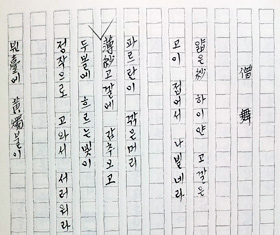 僧舞
얇은 紗 하이얀 고깔은
고이 접어서 나빌네라
파르란이 깎은머리
薄紗고깔에 감추오고
두볼에 흐르는빛이
정작으로 고와서 서러워라
빈臺에 黃燭불이